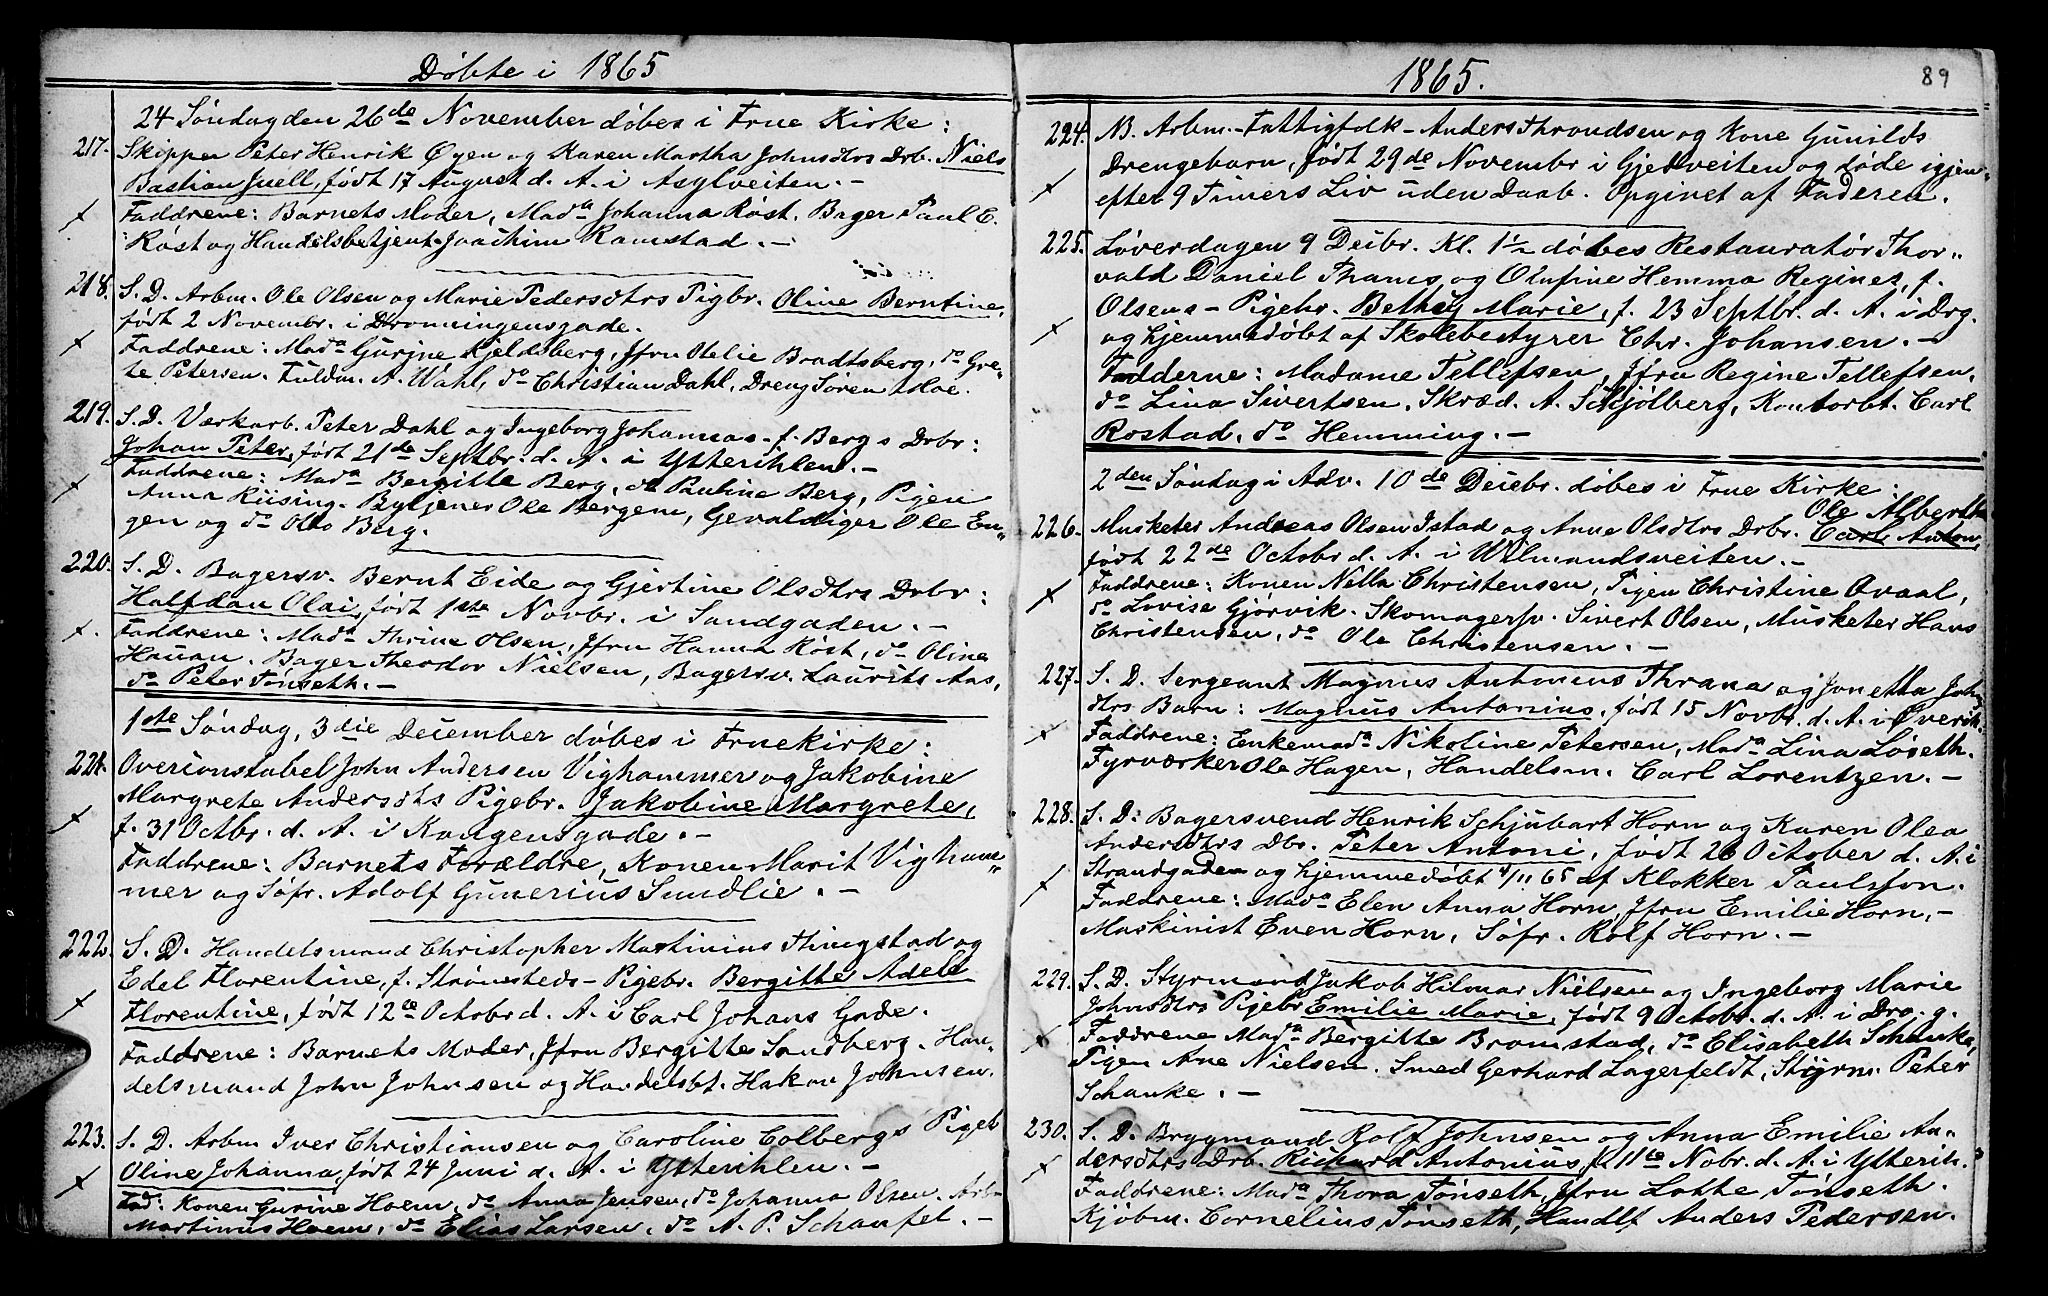 Døbte i 1865
24 Søndag den 26de November døbes i Frue Kirke:
217. Skipper Peter Henrik Øyen og Karen Martha Johnsdtrs Drb. Niels
Bastian Juell, født 17 August d. A. i Asylveiten. -
Faddrene: Barnets Moder, Mada Johanna Røst. Bager Paul E.
Røst og Handelsbetjent Joachim Ramstad. -
218. S. D. Arbm. Ole Olsen og Marie Pedersdtrs Pigbr. Oline Berntine,
født 2 Novembr. i Dronningensgade.
Faddrene: Mada Gurine Kjeldsberg, Jfru Otelie Bradtsberg, do Gre-
te Petersen. Fuldm. A. Wahl, do Christian Dahl, Dreng Soren Moe.
219. S. D. Værkarb. Peter Dahl og Ingeborg Johannas f. Bergs Drbr:
Johan Peter, født 21de Septbr. d. A. i Ytterihlen. -
Faddrene: Mada Bergitte Berg, do Pauline Berg, Pigen
Anna Riising. Bytjener Ole Bergem, Gevaldiger Ole En-
gen og do Otto Berg.
220. S. D. Bagersv. Bernt Eide og Gjertine Olsdtrs Drbr:
Halfdan Olai, født 1ste Novbr. i Sandgaden. -
Faddrene: Mada Thrine Olsen, Jfru Hanna Røst, do Oline
Hauan. Bager Theodor Nielsen, Bagersv. Laurits Aas,
do Peter Tønseth. -
1ste Søndag, 3die December døbes i Fruekirke:
221. Overconstabel John Andersen Vighammer og Jakobine
Margrete Andersdtrs Pigebr. Jakobine Margrete,
f. 31 Octbr. d. A. i Kongensgade. -
Faddrene: Barnets Forældre, Konen Marit Vigham-
mer og Søfr. Adolf Gunerius Sundlie. -
222. S. D. Handelsmand Christopher Martinius Hingstad og
Edel Florentine, f. Strømsteds - Pigebr. Bergitte Adele
Florentine, født 12te Octobr d. A. i Carl Johans Gade.
Faddrene: Barnets Moder, Jfru Bergitte Sandberg. Han-
delsmand John Johnsen og Handelsbt. Hakon Johnsen.
223. S. D. Arbm Iver Christiansen og Caroline Colbergs Pigeb
Oline Johanna, født 24 Juni d. A. i Ytterihlen. -
Fad: Konen Gurine Hoem, do Anna Jensen, do Johanna Olsen. Arb-
Martinus Hoem, do Elias Larsen, do A. P. Schaufel. -
1865. 89
224. NB. Arbm. - Fattigfolk - Anders Throndsen og Kone Gunilds
Drengebarn, født 29de Novembr i Gjedveiten og døde igjen
efter 9 Timers Liv uden Daab. Opginet af Faderen.
225. Løverdagen 9 Decbr. Kl. 1½ døbes Restauratør Thor-
vald Daniel Thams og Olufine Hemma Regines, f.
Olsens - Pigebr. Bethey Marie, f. 23 Septbr. d. A. i Drg.
og hjemmedøbt af Skolebestyrer Chr. Johansen. -
Fadderne: Madame Tellefsen, Jfru Regine Tellefsen.
do Lina Sivertsen. Skræd. A. Schjølberg, Kontorbt. Carl
Rostad, do Hemming. -
2den Søndag i Adv. 10de Decebr. døbes i Frue Kirke:
Ole Albert
226. Musketer Andreas Olsen Istad og Anne Olsdtrs Drbr. Carl Anton,
født 22de Octobr d. A. i Wilmandsveiten. -
Faddrene: Konen Nella Christensen, Pigen Christine Qvaal,
do Lovise Gjørvik. Skomagersv. Sivert Olsen, Musketer Hans
Christensen, do Ole Christensen. -
227. S. D. Sergeant Magnus Antonius Thrana og Jonetta Johns
dtrs Barn: Magnus Antonius, født 15 Novbr. d. A. i Øverih.
Faddrene: Enkemada Nikoline Petersen, Mada Lina Løseth.
Fyrværker Ole Hagen, Handelsm. Carl Lorentzen. -
228. S. D: Bagersvend Henrik Schjubart Horn og Karen Olea
Andersdtrs Dbr. Peter Antoni, født 26 October d. A. i
Strandgaden og hjemmedøbt 4/11 65 af Klokker Paulsson.
Faddrene: Mada Elen Anna Horn, Jfru Emilie Horn, -
Maskinist Even Horn, Søfr. Rolf Horn. -
229. S. D. Styrmand Jakob Hilmar Nielsen og Ingeborg Marie
Johnsdtrs Pigebr Emilie Marie, født 9 Octobr. d. A. i Dro. g.
Faddrene Mada Bergitte Bromstad, do Elisabeth Schanke,
Pigen Ane Nielsen. Smed Gerhard Lagerfeldt, Styrm. Peter
Schanke. -
230. S. D. Brygmand Rolf Johnsen og Anna Emilie An-
dersdtrs Drb. Richard Antonius, f. 11te Nobr. d. A. i Ytterih.
Faddrene: Mada Thora Tønseth, Jfru Lotte Tønseth.
Kjøbm. Cornelius Tønseth, Handlf Anders Pedersen.